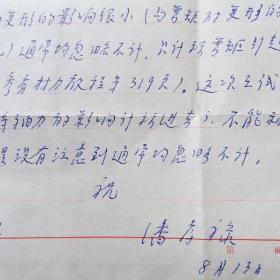 变形的影响很小(与弯矩对变形的
)通常均忽略不计,只计抵弯矩引起
参看材力教程第319页)。这次主试
等轴力的影响计秘进考 不能秘
没有注意到通常均忽略不计。
祝
潘
8月13日
第